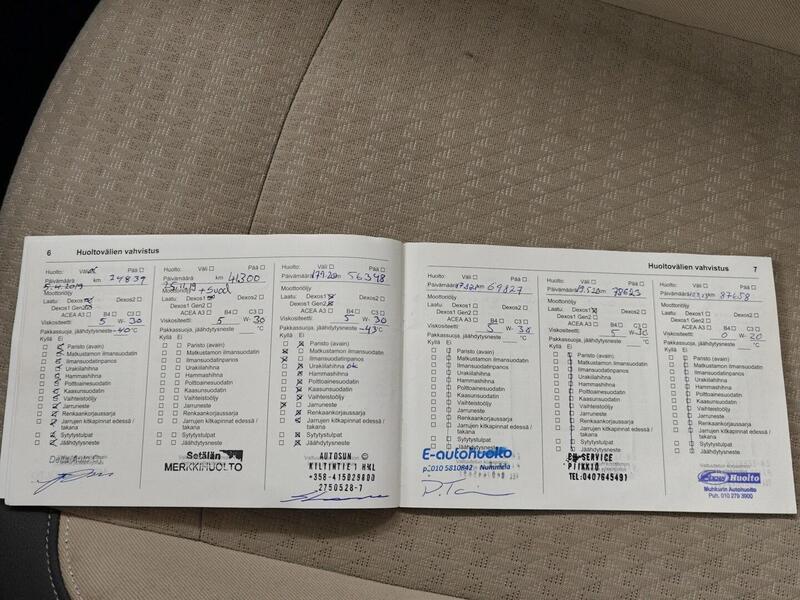 6 Huoltovälien vahvistus
Huolto: Väli Pää
Päivämäärä km 24839
5.4.2019
Moottoriöljy
Laatu: Dexos1 Dexos2
Dexos1 Gen2
ACEA A3 B4 C3
Viskositeetti: 5 W- 30
Pakkassuoja, jäähdytysneste -40 °C
Kyllä Ei
Paristo (avain)
Matkustamon ilmansuodatin
Ilmansuodatinpanos
Urakiilahihna
Hammashihna
Polttoainesuodatin
Kaasunsuodatin
Vaihteistoöljy
Jarruneste
Renkaankorjaussarja
Jarrujen kitkapinnat edessä /
takana
Sytytystulpat
Jäähdytysneste
Huolto: Väli Pää
Päivämäärä km 41300
Moottoriöljy +Suod
Laatu: Dexos1 Dexos2
Dexos1 Gen2
ACEA A3 B4 C3
Viskositeetti: 5 W- 30
Pakkassuoja, jäähdytysneste °C
Kyllä Ei
Paristo (avain)
Matkustamon ilmansuodatin
Ilmansuodatinpanos
Urakiilahihna
Hammashihna
Polttoainesuodatin
Kaasunsuodatin
Vaihteistoöljy
Jarruneste
Renkaankorjaussarja
Jarrujen kitkapinnat edessä /
takana
Sytytystulpat
Jäähdytysneste
Setälän
MERKKIHUOLTO
Huolto: Väli Pää
Päivämäärä km 56348
Moottoriöljy
Laatu: Dexos1 Dexos2
Dexos1 Gen2
ACEA A3 B4 C3
Viskositeetti: 5 W- 30
Pakkassuoja, jäähdytysneste -43 °C
Kyllä Ei
Paristo (avain)
Matkustamon ilmansuodatin
Ilmansuodatinpanos
Urakiilahihna ok
Hammashihna
Polttoainesuodatin
Kaasunsuodatin
Vaihteistoöljy
Jarruneste
Renkaankorjaussarja
Jarrujen kitkapinnat edessä /
takana
Sytytystulpat
Jäähdytysneste
AUTOSUN
KILTINTIE 1 HNL
+358-415029800
2750528-7
Huoltovälien vahvistus 7
Huolto: Väli Pää
Päivämäärä km 69827
Moottoriöljy
Laatu: Dexos1 Dexos2
Dexos1 Gen2
ACEA A3 B4 C3
Viskositeetti: 5 W- 30
Pakkassuoja, jäähdytysneste °C
Kyllä Ei
Paristo (avain)
Matkustamon ilmansuodatin
Ilmansuodatinpanos
Urakiilahihna
Hammashihna
Polttoainesuodatin
Kaasunsuodatin
Vaihteistoöljy
Jarruneste
Renkaankorjaussarja
Jarrujen kitkapinnat edessä /
takana
Sytytystulpat
Jäähdytysneste
E-autohuolto
P. 010 5810842 Nummela
Huolto: Väli Pää
Päivämäärä km 78623
Moottoriöljy
Laatu: Dexos1 Dexos2
Dexos1 Gen2
ACEA A3 B4 C3
Viskositeetti: 5 W- 30
Pakkassuoja, jäähdytysneste °C
Kyllä Ei
Paristo (avain)
Matkustamon ilmansuodatin
Ilmansuodatinpanos
Urakiilahihna
Hammashihna
Polttoainesuodatin
Kaasunsuodatin
Vaihteistoöljy
Jarruneste
Renkaankorjaussarja
Jarrujen kitkapinnat edessä /
takana
Sytytystulpat
Jäähdytysneste
SERVICE
PIIKKIÖ
TEL:0407645491
Huolto: Väli Pää
Päivämäärä km 87658
Moottoriöljy
Laatu: Dexos1 Dexos2
Dexos1 Gen2
ACEA A3 B4 C3
Viskositeetti: 0 W- 20
Pakkassuoja, jäähdytysneste °C
Kyllä Ei
Paristo (avain)
Matkustamon ilmansuodatin
Ilmansuodatinpanos
Urakiilahihna
Hammashihna
Polttoainesuodatin
Kaasunsuodatin
Vaihteistoöljy
Jarruneste
Renkaankorjaussarja
Jarrujen kitkapinnat edessä /
takana
Sytytystulpat
Jäähdytysneste
Huolto
Muhkurin Autohuolto
Puh. 010 279 3900